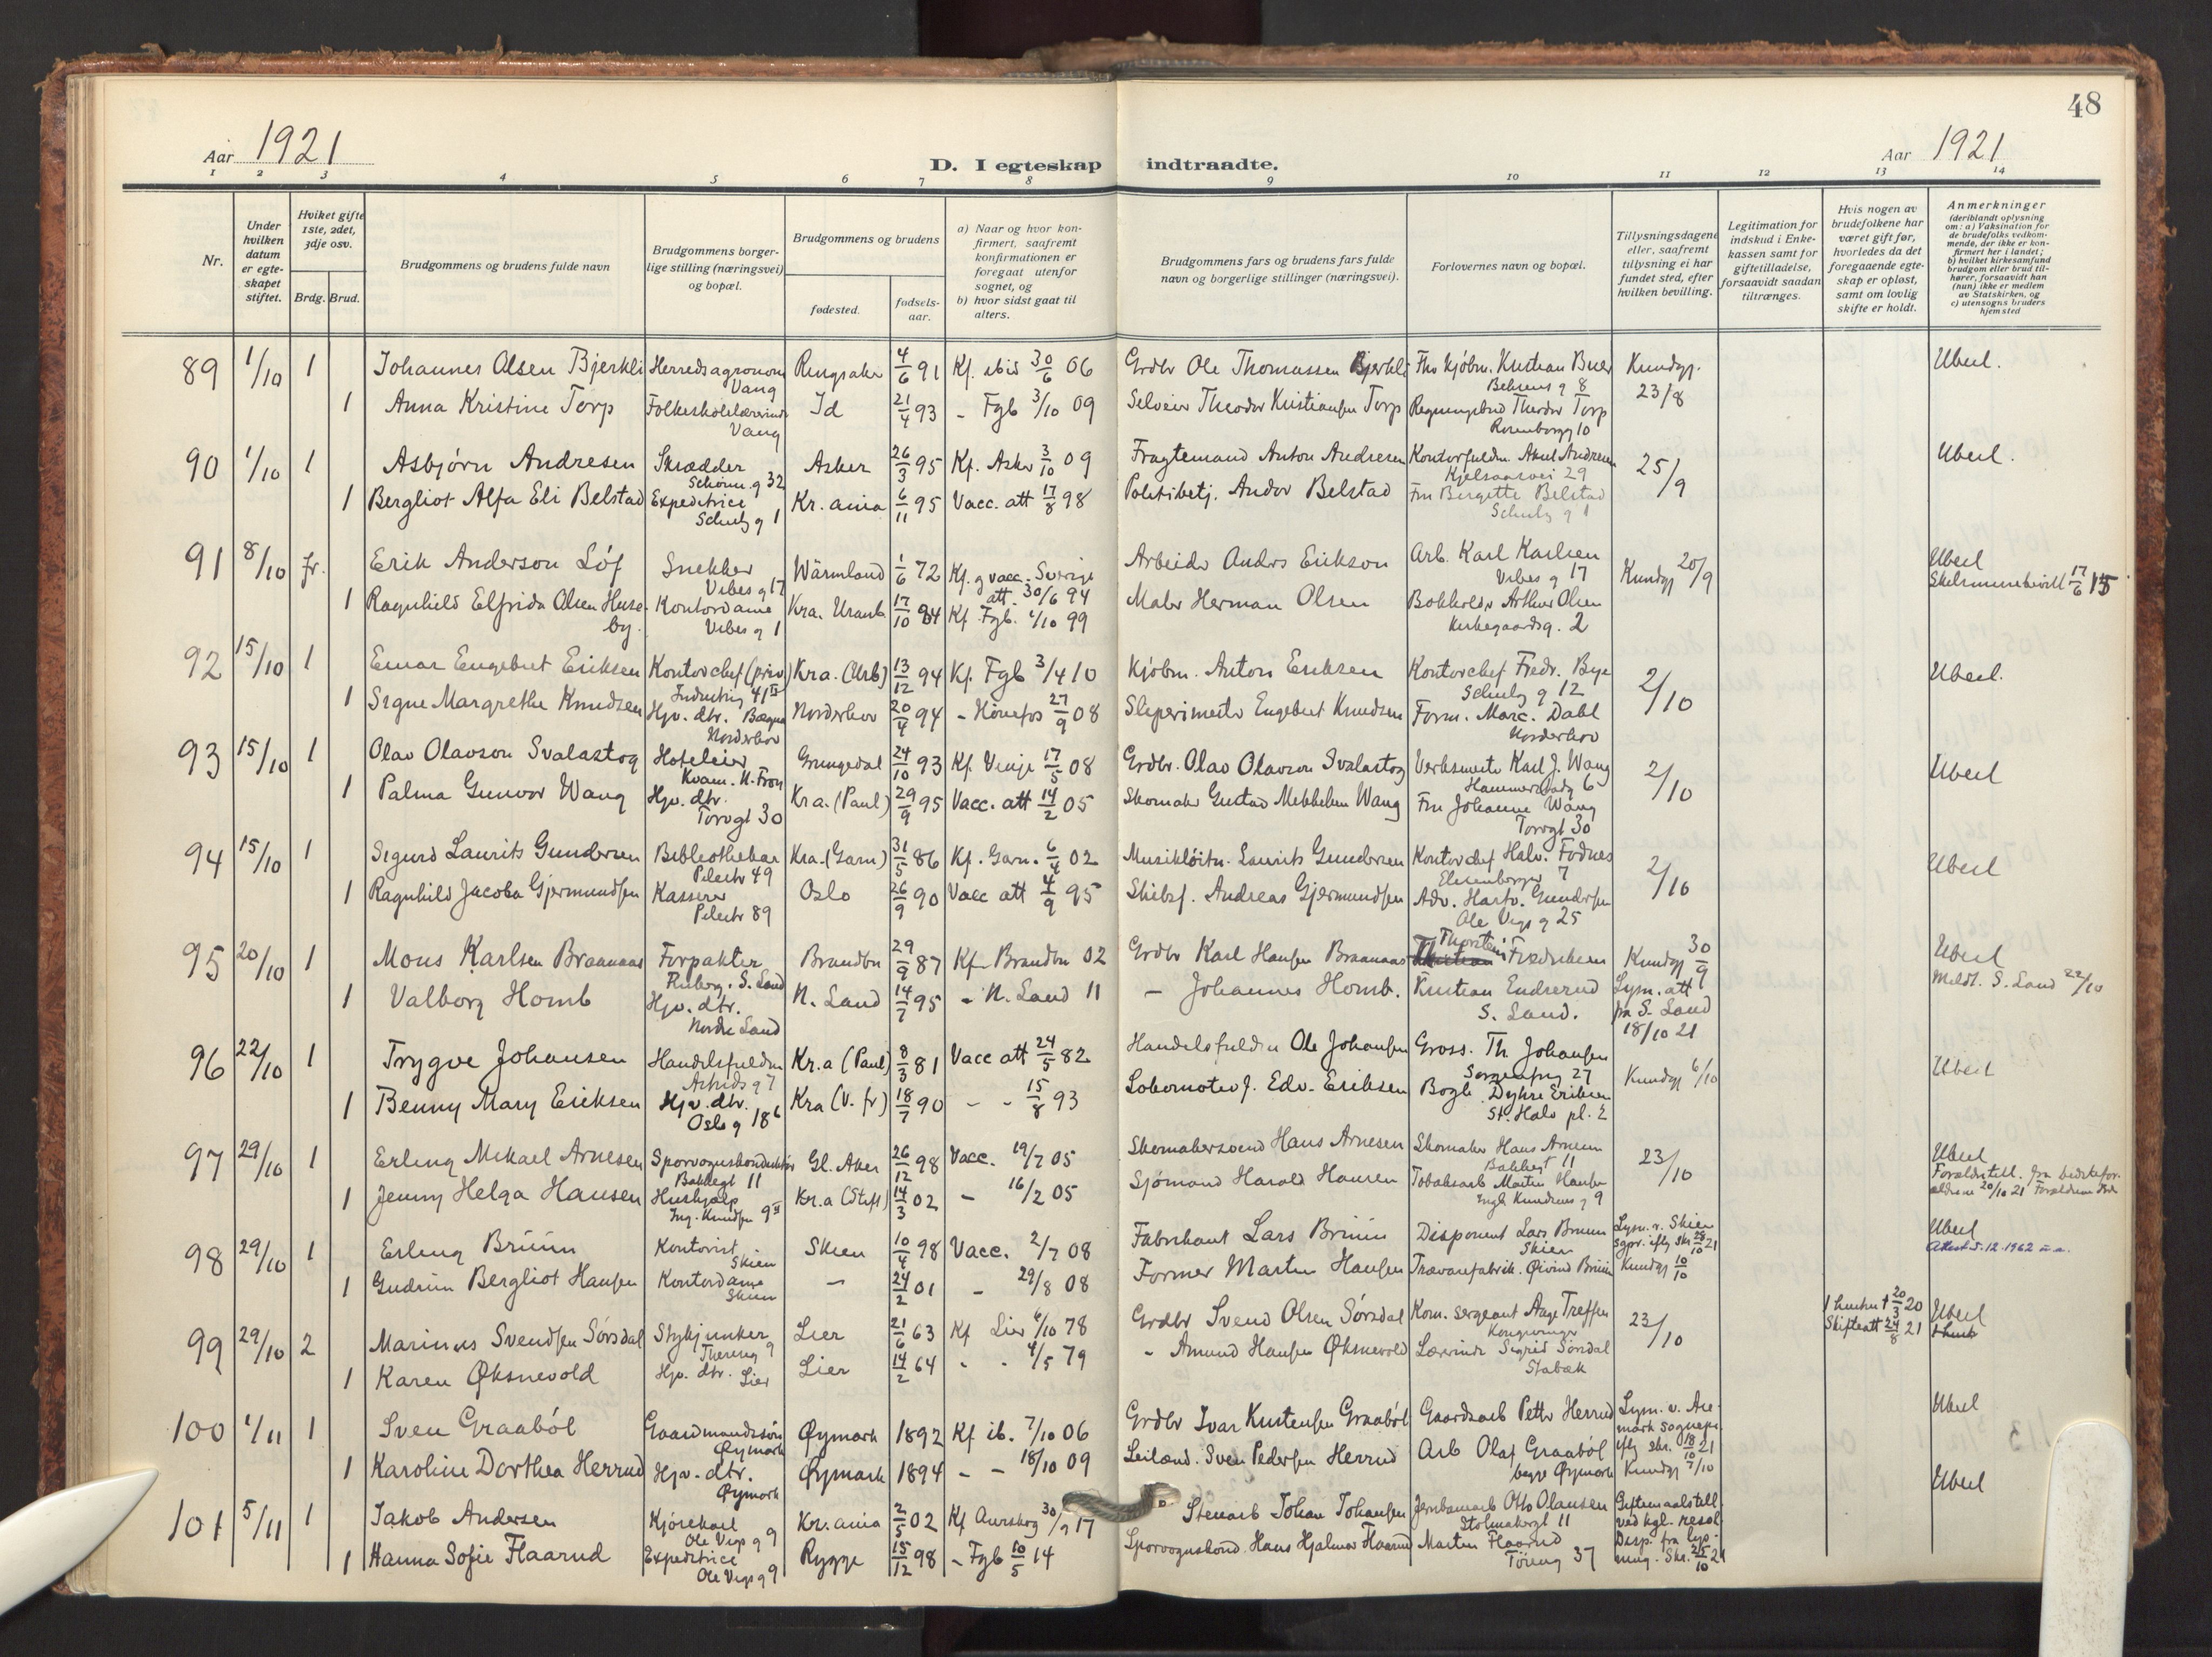 48
Aar 1921
D. I egteskap indtraadte.
Aar 1921
1 2 3 4 5 6 7 8 9 10 11 12 13 14
Nr.
Under hvilken datum er egteskapet stiftet.
Hviket gifte 1ste, 2det, 3dje osv.
Brdg. Brud.
Brudgommens og brudens fulde navn
Brudgommens borgerlige stilling (næringsvei) og bopæl.
Brudgommens og brudens
fødested.
fødselsaar.
a) Naar og hvor konfirmert, saafremt konfirmationen er foregaat utenfor sognet, og
b) hvor sidst gaat til alters.
Brudgommens fars og brudens fars fulde navn og borgerlige stillinger (næringsvei).
Forlovernes navn og bopæl.
Tillysningsdagene eller, saafremt tillysning ei har fundet sted, efter hvilken bevilling.
Legitimation for indskud i Enkekassen samt for giftetilladelse, forsaavidt saadan tiltrænges.
Hvis nogen av brudefolkene har været gift før, hvorledes da det foregaaende egteskap er opløst, samt om lovlig skifte er holdt.
Anmerkninger
(deriblandt oplysning om: a) Vaksination for de brudefolks vedkommende, der ikke er konfirmert her i landet; b) hvilket kirkesamfund brudgom eller brud tilhører, forsaavidt han (hun) ikke er medlem av Statskirken, og c) utensogns bruders hjemsted
89 1/10 1 Johannes Olsen Bjerkli Herredsagronom Vang Ringsaker 4/6 91 Kf. ibid 30/6 06 Grdbr Ole Thomassen Bjerkli Fhv kjøbm. Kristian Buer Behrens g 8 Kundgj. 23/8 Ubesl.
1 Anna Kristine Torp Folkeskolelærerinde Vang Id 21/4 93 - Fgb 3/10 09 Selveier Theodor Kristiansen Torp Regningsbud Theodor Torp Rosenborgg 10
90 1/10 1 Asbjørn Andresen Skrædder Schønn. g 32 Asker 26/3 95 Kf. Asker 3/10 09 Fragtemand Anton Andresen Kontorfuldm. Aksel Andresen Kjelsaasvei 29 25/9 Ubesl.
1 Bergliot Alfa Eli Belstad Expeditrice Schultz g 1 Kr.ania 6/11 95 Vacc. att 17/8 98 Politibetj. Andor Belstad Fru Birgitte Belstad Schultz g 1
91 8/10 fr. Erik Anderson Löf Snekker Vibes g 17 Wärmland 1/6 72 Kf. g vacc. Sverige att. 30/6 94 Arbeider Anders Erikson Arb. Karl Karlsen Vibes g 17 Kundgj 20/9 Ubesl
1 Ragnhild Elfrida Olsen Huseby. Kontordame Vibes g 1 Kra. Uranb 17/10 84 Kf. Fgb. 1/10 99 Maler Herman Olsen Bokholder Arthur Olsen Kirkegaardsg. 2
92 15/10 1 Einar Engebret Eriksen Kontorchef (priv) Industrig 41 II Kra. (Urb) 13/12 94 Kf. Fgb 3/4 10 Kjøbm. Anton Eriksen Kontorchef Fredr. Bye Schultz g 12 2/10 Ubesl.
1 Signe Margrethe Knudsen Hjv. dtr. Norderhov Norderhov 20/4 94 - Hønefos 27/9 08 Sliperimester Engebret Knudsen Form. Marc. Dahl Norderhov
93 15/10 1 Olav Olavson Svalastog Hoteleier Kvam. N. Fron Grungedal 24/10 93 Kf. Vinje 17/5 08 Grdbr. Olav Olavson Svalastog Verksmester Karl J. Wang Hammerstadg 6 2/10 Ubesl
1 Palma Gunvor Wang Hjv. dtr. Torvgt 30 Kra. (Paul) 29/9 95 Vacc. att 14/2 05 Skomaker Gustav Mikkelsen Wang Fru Johanne Wang Torvgt 30
94 15/10 1 Sigurd Laurits Gundersen Bibliothekar Pilestr 49 Kra. (Garn) 31/5 86 Kf. Garn. 6/4 02 Musikløitn. Laurits Gundersen Kontorchef Halv. Fodnes 2/10 Ubesl
1 Ragnhild Jacoba Gjermundsen Kasserer Pilestr 89 Oslo 26/9 90 Vacc att 4/9 95 Skibsf. Andreas Gjermundsen Adv. Hartv. Gundersen Ole Vigs g 25
95 20/10 1 Mons Karlsen Braanaas Forpakter S. Land Brandbu 29/9 87 Kf Brandbu 02 Grdbr Karl Hansen Braanaas Thorstein Fredriksen Kundgj 30/9 Ubesl Meldt. S. Land 22/10
1 Valborg Homb Hjv. dtr. Nordre Land N. Land 14/7 95 - N. Land 11 - Johannes Homb. Kristian Endrerud S. Land. Lysn. att fra S. Land 18/10 21
96 22/10 1 Trygve Johansen Handelsfuldm Astrids g 7 Kr.a (Paul) 8/3 81 Vacc att 24/5 82 Handelsfuldm Ole Johansen Gross. Th. Johansen Sorgenfrig 27 Kundgj 6/10 Ubesl
1 Benny Mary Eriksen Hjv. dtr. Oslo g 18 Kra (V. fr) 18/7 90 - - 15/8 93 Lokomotivf. Edv. Eriksen Bogh. Dyhre Eriksen St. Halv pl. 2
97 29/10 1 Erling Mikael Arnesen Sporvognskonduktør Bakkegt 11 Gl. Aker 26/12 98 Vacc. 19/7 05 Skomakersvend Hans Arnesen Skomaker Hans Arnesen Bakkegt 11 23/10 Ubesl
1 Jenny Helga Hansen Hushjælp Ing. Knudsen 9 II Kr.a (Stift) 14/3 02 - 16/2 05 Sjømand Harald Hansen Tobaksarb Martin Hansen g 9
98 29/10 1 Erling Brüün Kontorist Skien Skien 10/4 98 Vacc. 2/7 08 Fabrikant Lars Brüün Disponent Lars Bruun Skien Lysn. v. Skien sgpr. iflg skr 28/10 21 Ubesl Attest 5.12.1962
1 Gudrün Bergliot Hansen Kontordame Skien - 24/2 01 - 29/8 08 Former Martin Hansen Trævarefabrik. Øivind Brüün Kundgj 10/10
99 29/10 2 Marinus Svendsen Sørsdal Stykjunker Thereseg 9 Lier 21/6 63 Kf Lier 6/10 78 Grdbr Svend Olsen Sørsdal Kom. sergeant Aage Treffen Kongsvinger 23/10 1 hustru † 20/3 20 Skifteatt 24/8 21 Ubesl
1 Karen Øksnevold Hjv. dtr. Lier Lier 14/2 64 - - 4/5 79 - Amund Hansen Øksnevold Lærerinde Sigrid Sørsdal Stabæk
100 1/11 1 Sven Graabøl Gaardmandssøn Øymark Øymark 1892 Kf ib. 7/10 06 Grdbr Ivar Kristensen Graabøl Gaardsarb Petter Herrud Lysn. v. Aremark sognepr. iflg skr. 18/10 21 Ubesl
1 Karoline Dorthea Herrud Hjv. dtr. Øymark Øymark 1894 - - 18/10 09 Leilænd. Sven Pedersen Herrud Arb Olaf Graabøl begge Øymark Kundgj 7/10
101 5/11 1 Jakob Andersen Kjørekarl Ole Vigs g 9 Kr.ania 2/5 02 Kf Aurskog 30/9 17 Stenarb Johan Johansen Jernbanearb Otto Olausen Stolmakergt 11 Giftemaalstill. ved kgl. resol. Ubesl
1 Hanna Sofie Flaarud Expeditrice Ole Vigs g 9 Rygge 15/12 98 - Fgb 10/5 14 Sporvognskond. Hans Hjalmar Flaarud Martin Flaarud Tøieng 37 Disp. fra lysning. Skr. 25/10 21